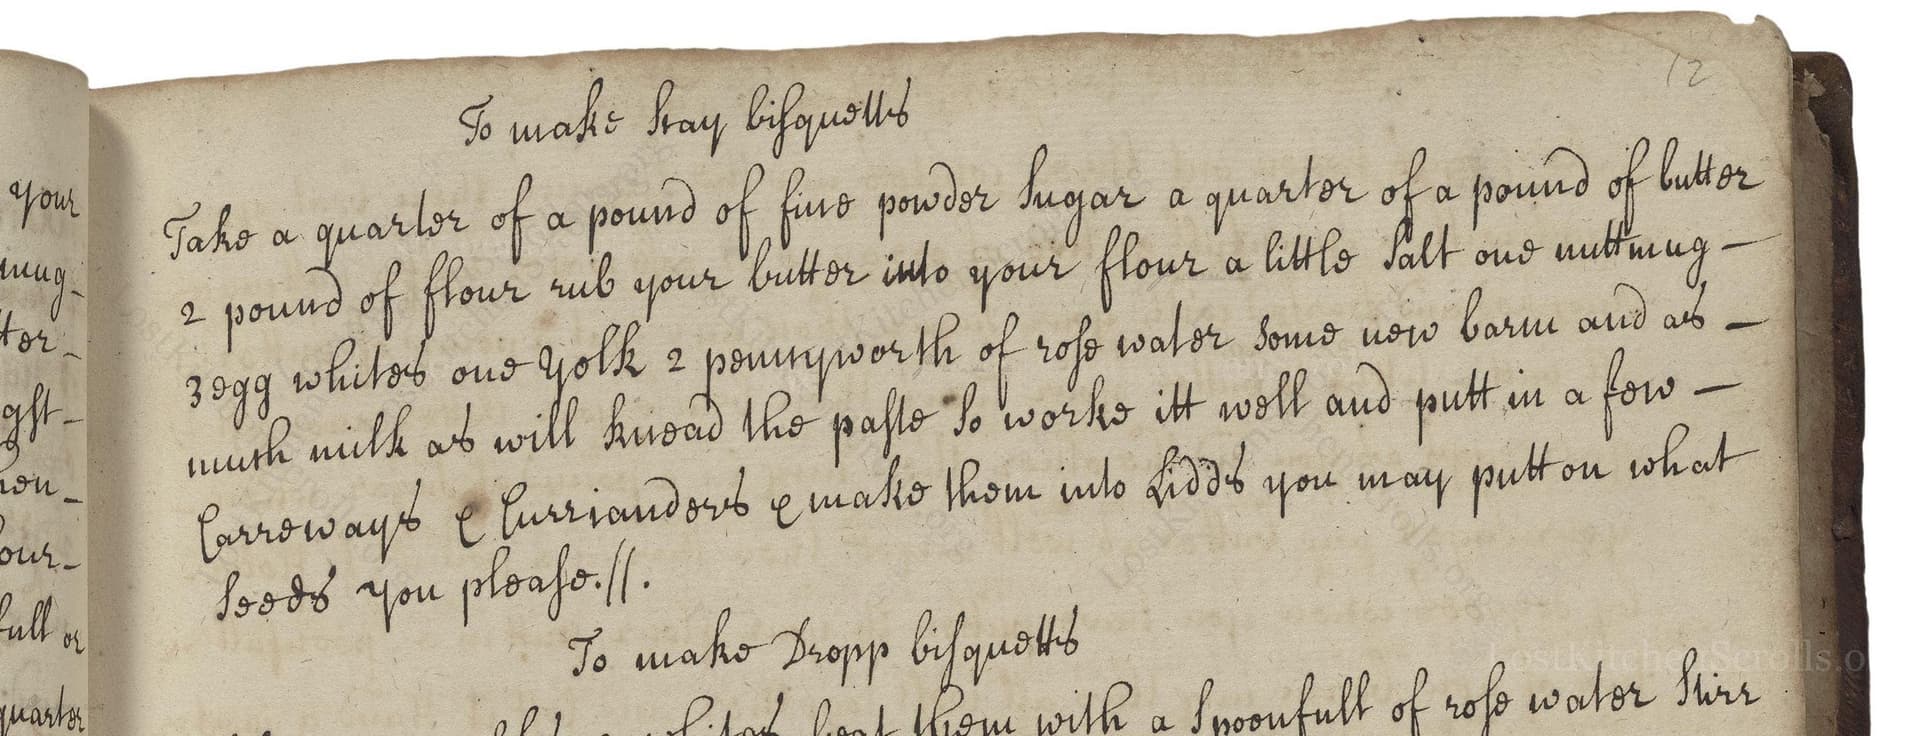 12
To make stay bisquetts
Take a quarter of a pound of fine powder sugar a quarter of a pound of butter
2 pound of flour rub your butter into your flour a little salt one nuttmug —
3 egg whites one yolk 2 pennyworth of rose water some new barm and as —
much milk as will knead the paste so worke itt well and putt in a few —
Carreways & Currianders & make them into Lidds you may putt on what
seeds you please.//.
To make Dropp bisquetts
whites beat them with a spoonfull of rose water stirr
your
mug -
ter -
ght -
hen -
our -
full or
quarter
LostKitchenScrolls.o